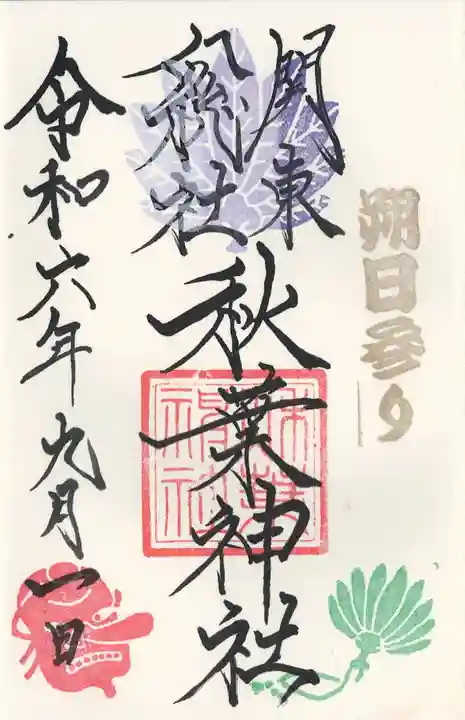 朔日参り
関東
総社
秋葉神社
秋葉神社
令和六年九月一日